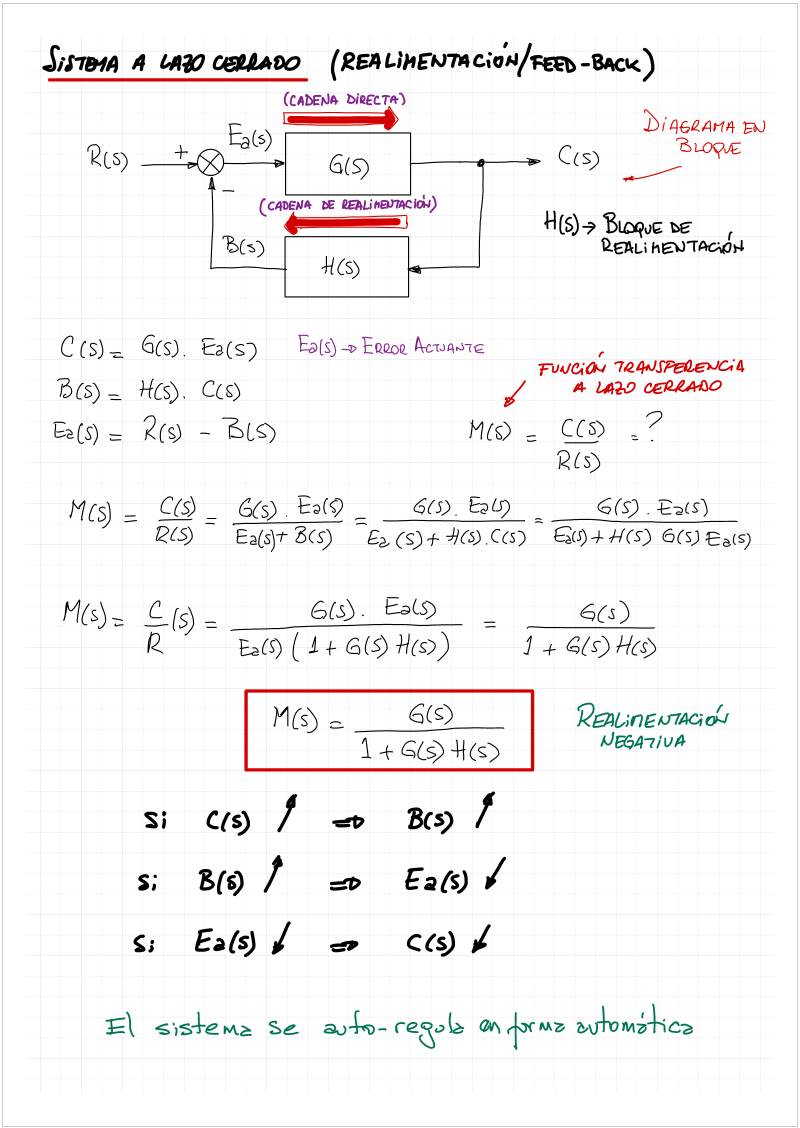 SISTEMA A LAZO CERRADO (REALIMENTACIÓN/FEED-BACK)
(CADENA DIRECTA)
R(s) + Ea(s) G(s) C(s)
DIAGRAMA EN
BLOQUE
−
(CADENA DE REALIMENTACIÓN)
B(s) H(s)
H(s) → BLOQUE DE
REALIMENTACIÓN
C(s) = G(s) . Ea(s)
Ea(s) → ERROR ACTUANTE
B(s) = H(s) . C(s)
Ea(s) = R(s) − B(s)
FUNCIÓN TRANSFERENCIA
A LAZO CERRADO
M(s) = C(s)/R(s) = ?
M(s) = C(s)/R(s) = G(s) . Ea(s)/Ea(s) + B(s) = G(s) . Ea(s)/Ea(s) + H(s) . C(s) = G(s) . Ea(s)/Ea(s) + H(s) G(s) Ea(s)
M(s) = C/R (s) = G(s) . Ea(s)/Ea(s) (1 + G(s) H(s)) = G(s)/1 + G(s) H(s)
M(s) = G(s)/1 + G(s) H(s)
REALIMENTACIÓN
NEGATIVA
Si C(s) ↗ ⇒ B(s) ↗
Si B(s) ↗ ⇒ Ea(s) ↙
Si Ea(s) ↙ ⇒ C(s) ↙
El sistema se auto-regula en forma automática